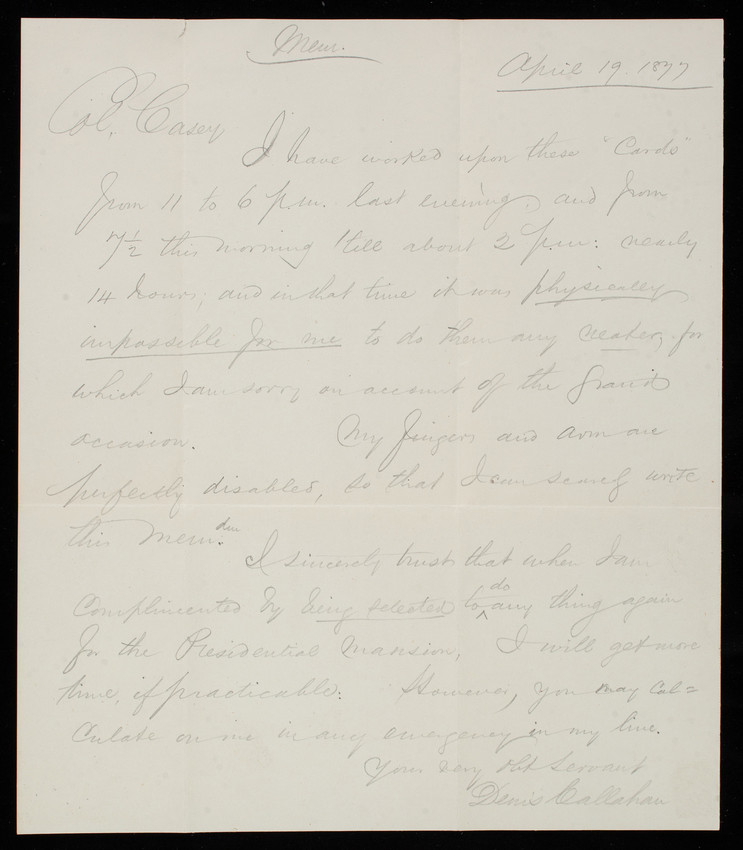 Mem.
April 19. 1877
Col. Casey
I have worked upon these "Cards"
from 11 to 6 p.m. last evening, and from
7½ this morning 'till about 2 p.m: nearly
14 hours; and in that time it was physically
impossible for me to do them any neater, for
which I am sorry on account of the grand
occasion. My fingers and arm are
perfectly disabled, so that I can scarcely write
this Memdm.
I sincerely trust that when I am
Complimented by being selected to do any thing again
for the Presidential Mansion, I will get more
time, if practicable: However, you may Cal=
culate on me in any emergency in my line.
Your very obt servant
Denis Callahan